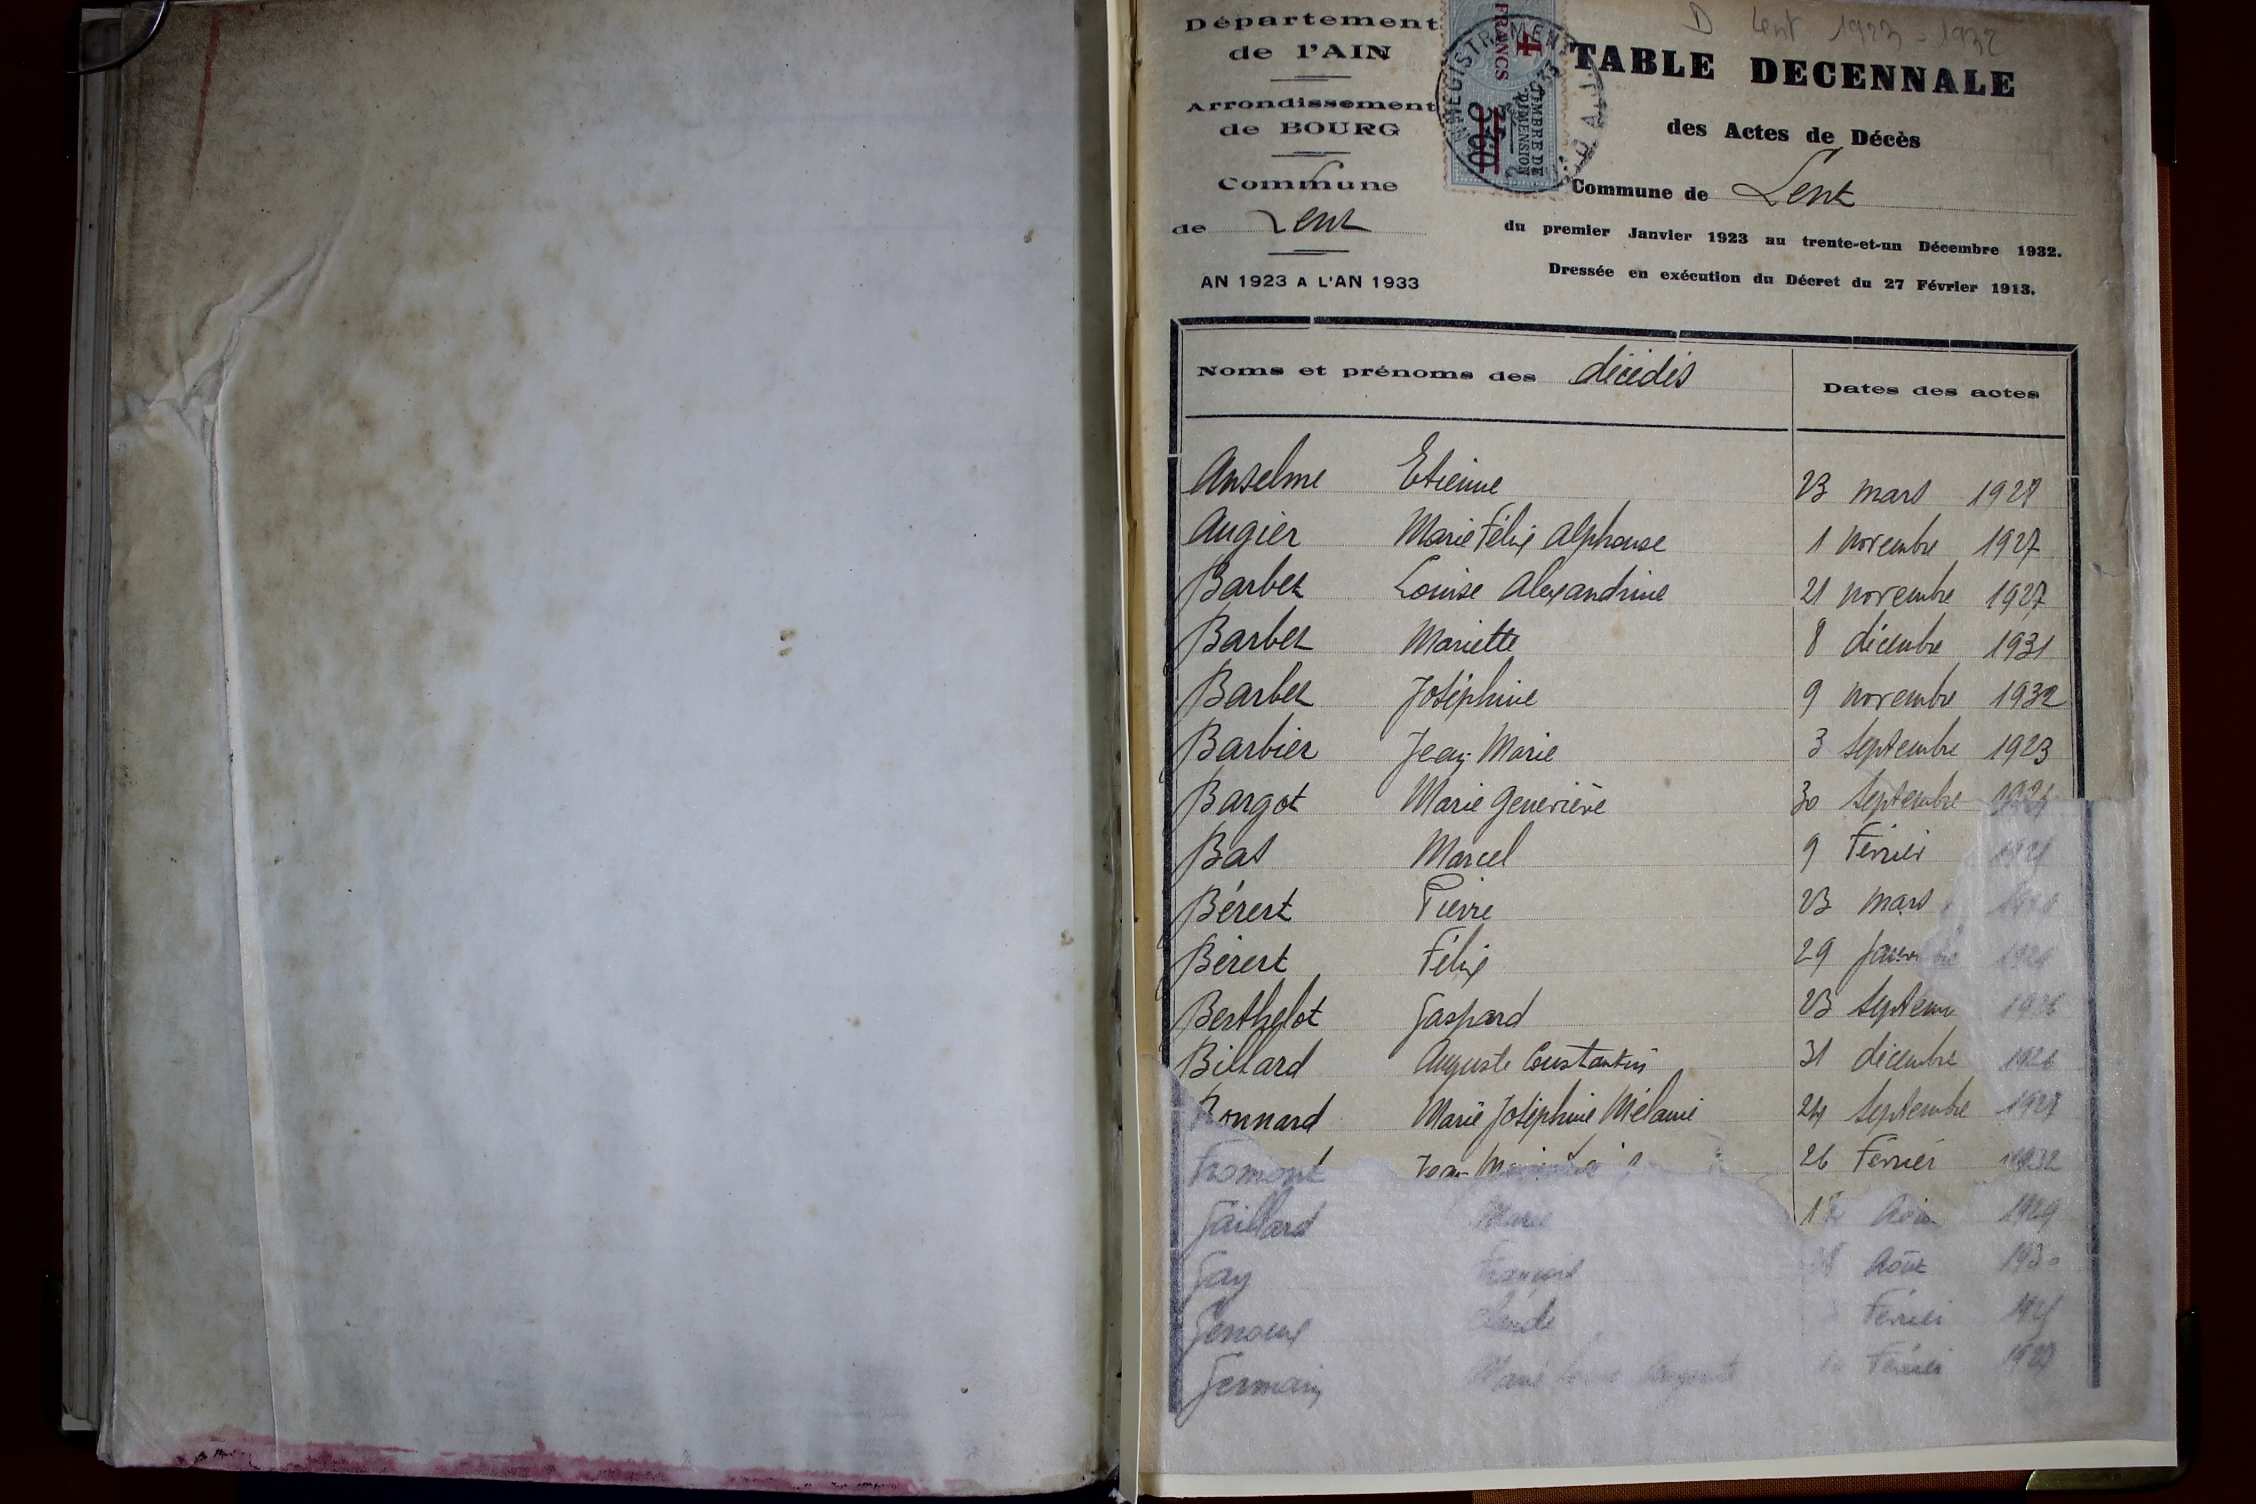 D Lent 1923-1932
Département
de l'AIN
Arrondissement
de BOURG
Commune
de Lent
AN 1923 A L'AN 1933
4 FRANCS
TIMBRE DE
DIMENSION
TABLE DECENNALE
des Actes de Décès
Commune de Lent
du premier Janvier 1923 au trente-et-un Décembre 1932.
Dressée en exécution du Décret du 27 Février 1913.
Noms et prénoms des décédés Dates des actes
Anselme Etienne 23 mars 1927
Augier Marie Félix Alphonse 1 novembre 1927
Barbet Louise Alexandrine 21 novembre 1927
Barbet Mariette 8 décembre 1931
Barbet Joséphine 9 novembre 1932
Barbier Jean-Marie 3 septembre 1923
Bargot Marie Geneviève 30 septembre
Bas Marcel 9 Février
Béreret Pierre 23 mars
Béreret Félix 29
Berthelot Gaspard 23 septem
Billard Auguste Constantin 31 décembre 1926
Bonnard Marie Joséphine Mélanie 24 septembre 1927
Fromont Jean 26 Février 1932
Gaillard Marie 1929
Gay François Août 1930
Genoux Claude Février
Germain Marie Février